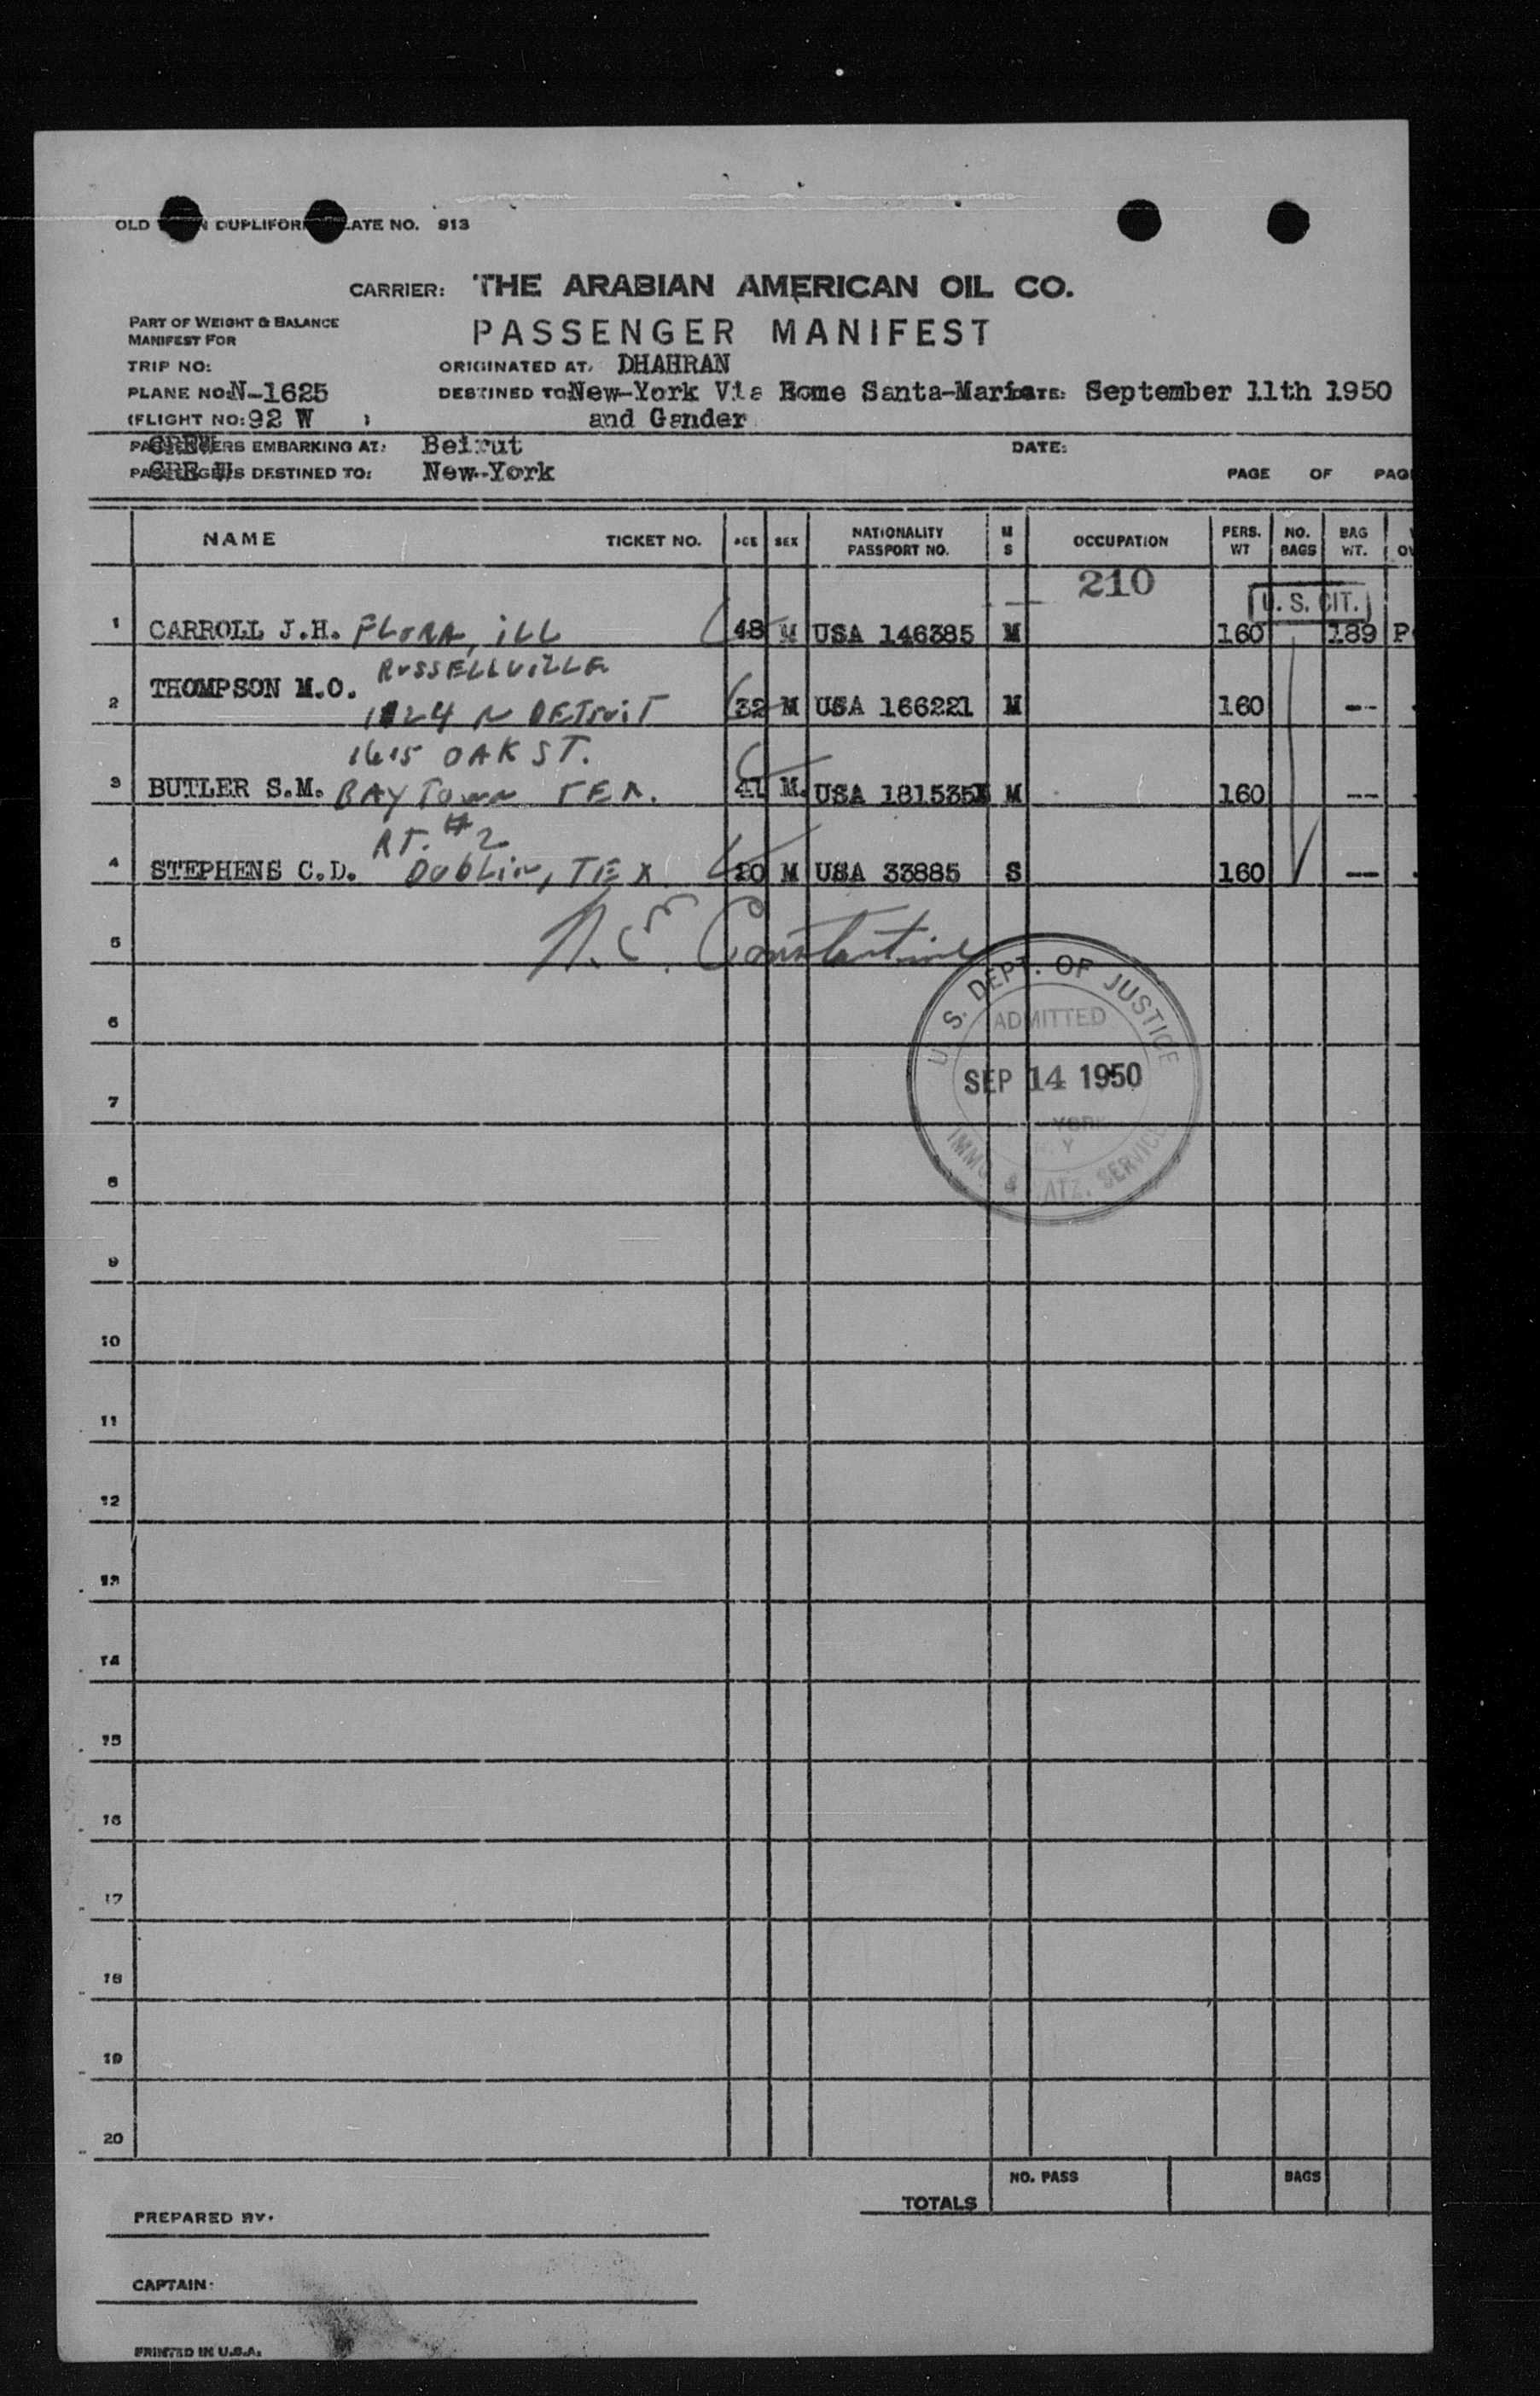 OLD DUPLIFORM PLATE NO. 913
CARRIER: THE ARABIAN AMERICAN OIL CO.
PART OF WEIGHT & BALANCE
MANIFEST FOR
PASSENGER MANIFEST
TRIP NO:
ORIGINATED AT: DHAHRAN
PLANE NO: N-1625
DESTINED TO: New-York Via Rome Santa-Maria DATE: September 11th 1950
(FLIGHT NO: 92 W )
and Gander
PASSENGERS EMBARKING AT: Beirut
DATE:
PASSENGERS DESTINED TO: New-York
PAGE OF PAG
NAME TICKET NO. AGE SEX NATIONALITY PASSPORT NO. M S OCCUPATION PERS. WT NO. BAGS BAG WT.
210
U. S. CIT.
1 CARROLL J.H. FLORA, ILL 48 M USA 146385 M 160 189 P
RUSSELLVILLE
2 THOMPSON M.O. 1124 N DETROIT 32 M USA 166221 M 160 --
1615 OAK ST.
3 BUTLER S.M. BAYTOWN TEX. 41 M. USA 181535 M 160 --
RT. #2
4 STEPHENS C.D. DUBLIN, TEX 20 M USA 33885 S 160 --
N. E. Constantine
5
U. S. DEPT. OF JUSTICE
ADMITTED
6
SEP 14 1950
7
YORK
N. Y
IMMG. & NATZ. SERVICE
8
9
10
11
12
13
14
15
16
17
18
19
20
NO. PASS BAGS
TOTALS
PREPARED BY:
CAPTAIN:
PRINTED IN U.S.A.